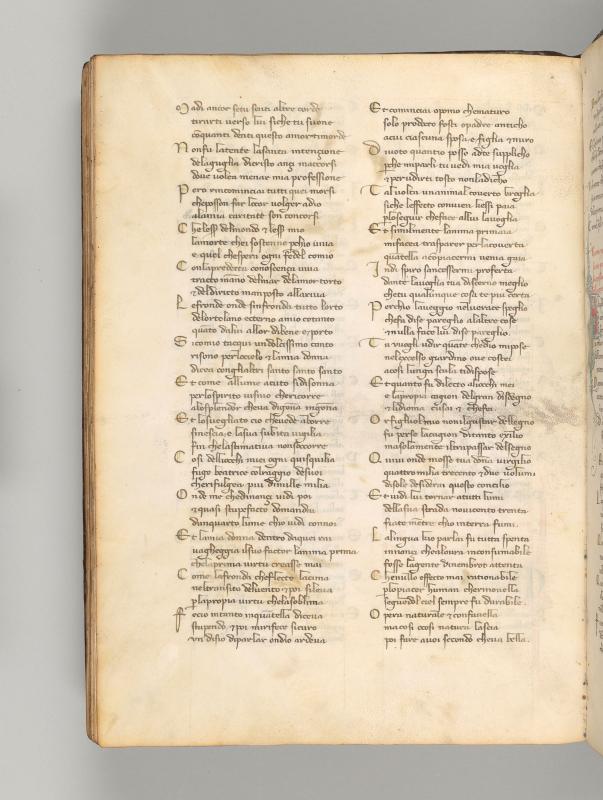 Madi ancor setu senti altre corde
tirarti verso lui siche tu suone
coquanti denti questo amor timorde
Nonfu latente lasanta intençione
delaguglia dicristo ançi maccorsi
dove volea menar mia professione
Pero rincominciai tutti quei morsi
cheposson far locor volger adio
alamia caritate son concorsi
Che less delmondo & less mio
lamorte chei sostenne pchio viva
e quel chespera ogni fedel comio
Conlapredetta conoscença viva
tracto mano delmar delamor torto
& deldiricto manposto allariva
Lefronde onde sinfronda tutto lorto
delortolano ecterno amio cotanto
quato dalui allor dibene e porto
Sicomio tacqui undolcissimo canto
risono perlocielo & lamia donna
dicea congliatri santo santo santo
Et come allume acuto sidisonna
perlospirito visivo chericorre
alosplendor cheva digona ingona
Et losvegliato cio cheuede aborre
sinescia e lasua subita vigilia
fin chelastimativa nonsoccorre
Cosi dellocchi miei ogni quisquilia
fugo beatrice colraggio desuoi
cherifulgea piu dimille milia
Onde me chedinançi vidi poi
& quasi stupefacto domandai
dunquarto lume chio vidi connoi
Et lamia donna dentro daquei rai
vagheggia ilsuo factor lanima prima
chela prima virtu creasse mai
Come lafronda cheflecte lacima
neltransito delvento & poi sileva
plapropia virtu chelasoblima
Fecio intanto inquantella diceva
stupendo & poi mirifece sicuro
un disio diparlar ondio ardeva
Et cominciai opomo chematuro
solo prodocto fosti opadre anticho
acui ciascuna sposa e figlia & nuro
Divoto quantio posso adte supplicho
pche miparli tu vedi mia voglia
& perudirti tosto nonladicho
Tal volta unanimal coverto broglia
siche leffecto convien liessi paia
plo seguir cheface allui lavoglia
Et similmente lanima primaia
mifacea trasparer perlacouerta
quatella acopiacermi venia gaia
Indi spiro sancessermi proferta
dante lavoglia tua discerno meglio
chetu qualunque cosa te piu certa
Perchio laveggio nelverace speglio
chefa dise pareglio alaltre cose
& nulla face lui dise pareglio
Tu vuogli udir quate chedio mipose
nel eccelso giardino ove costei
acosi lunga scala tidispose
Et quanto fu dilecto aliocchi mei
e lapropia cagion delgran disdegno
& lidioma cusai & chefei
Or figliuol mio nonilgustar dellegno
fu perse lacagion ditanto exilio
ma solamente iltrapassar delsegno
Quivi onde mosse tua dona virgilio
quattromilia trecento & due volumi
disole desiderai questo concilio
Et vidi lui tornar atutti lumi
dellasua strada novecento trenta
fiate mentre chio interra fumi
Lalingua kio parlai fu tutta spenta
innançi chealovra inconsumabile
fosse lagente dinembrot attenta
Chenullo effecto mai rationabile
plopiacer human cherinovella
seguendol ciel sempre fu durabile
Opera naturale & confavella
ma cosi ocosi natura lascia
poi fare avoi secondo cheva bella